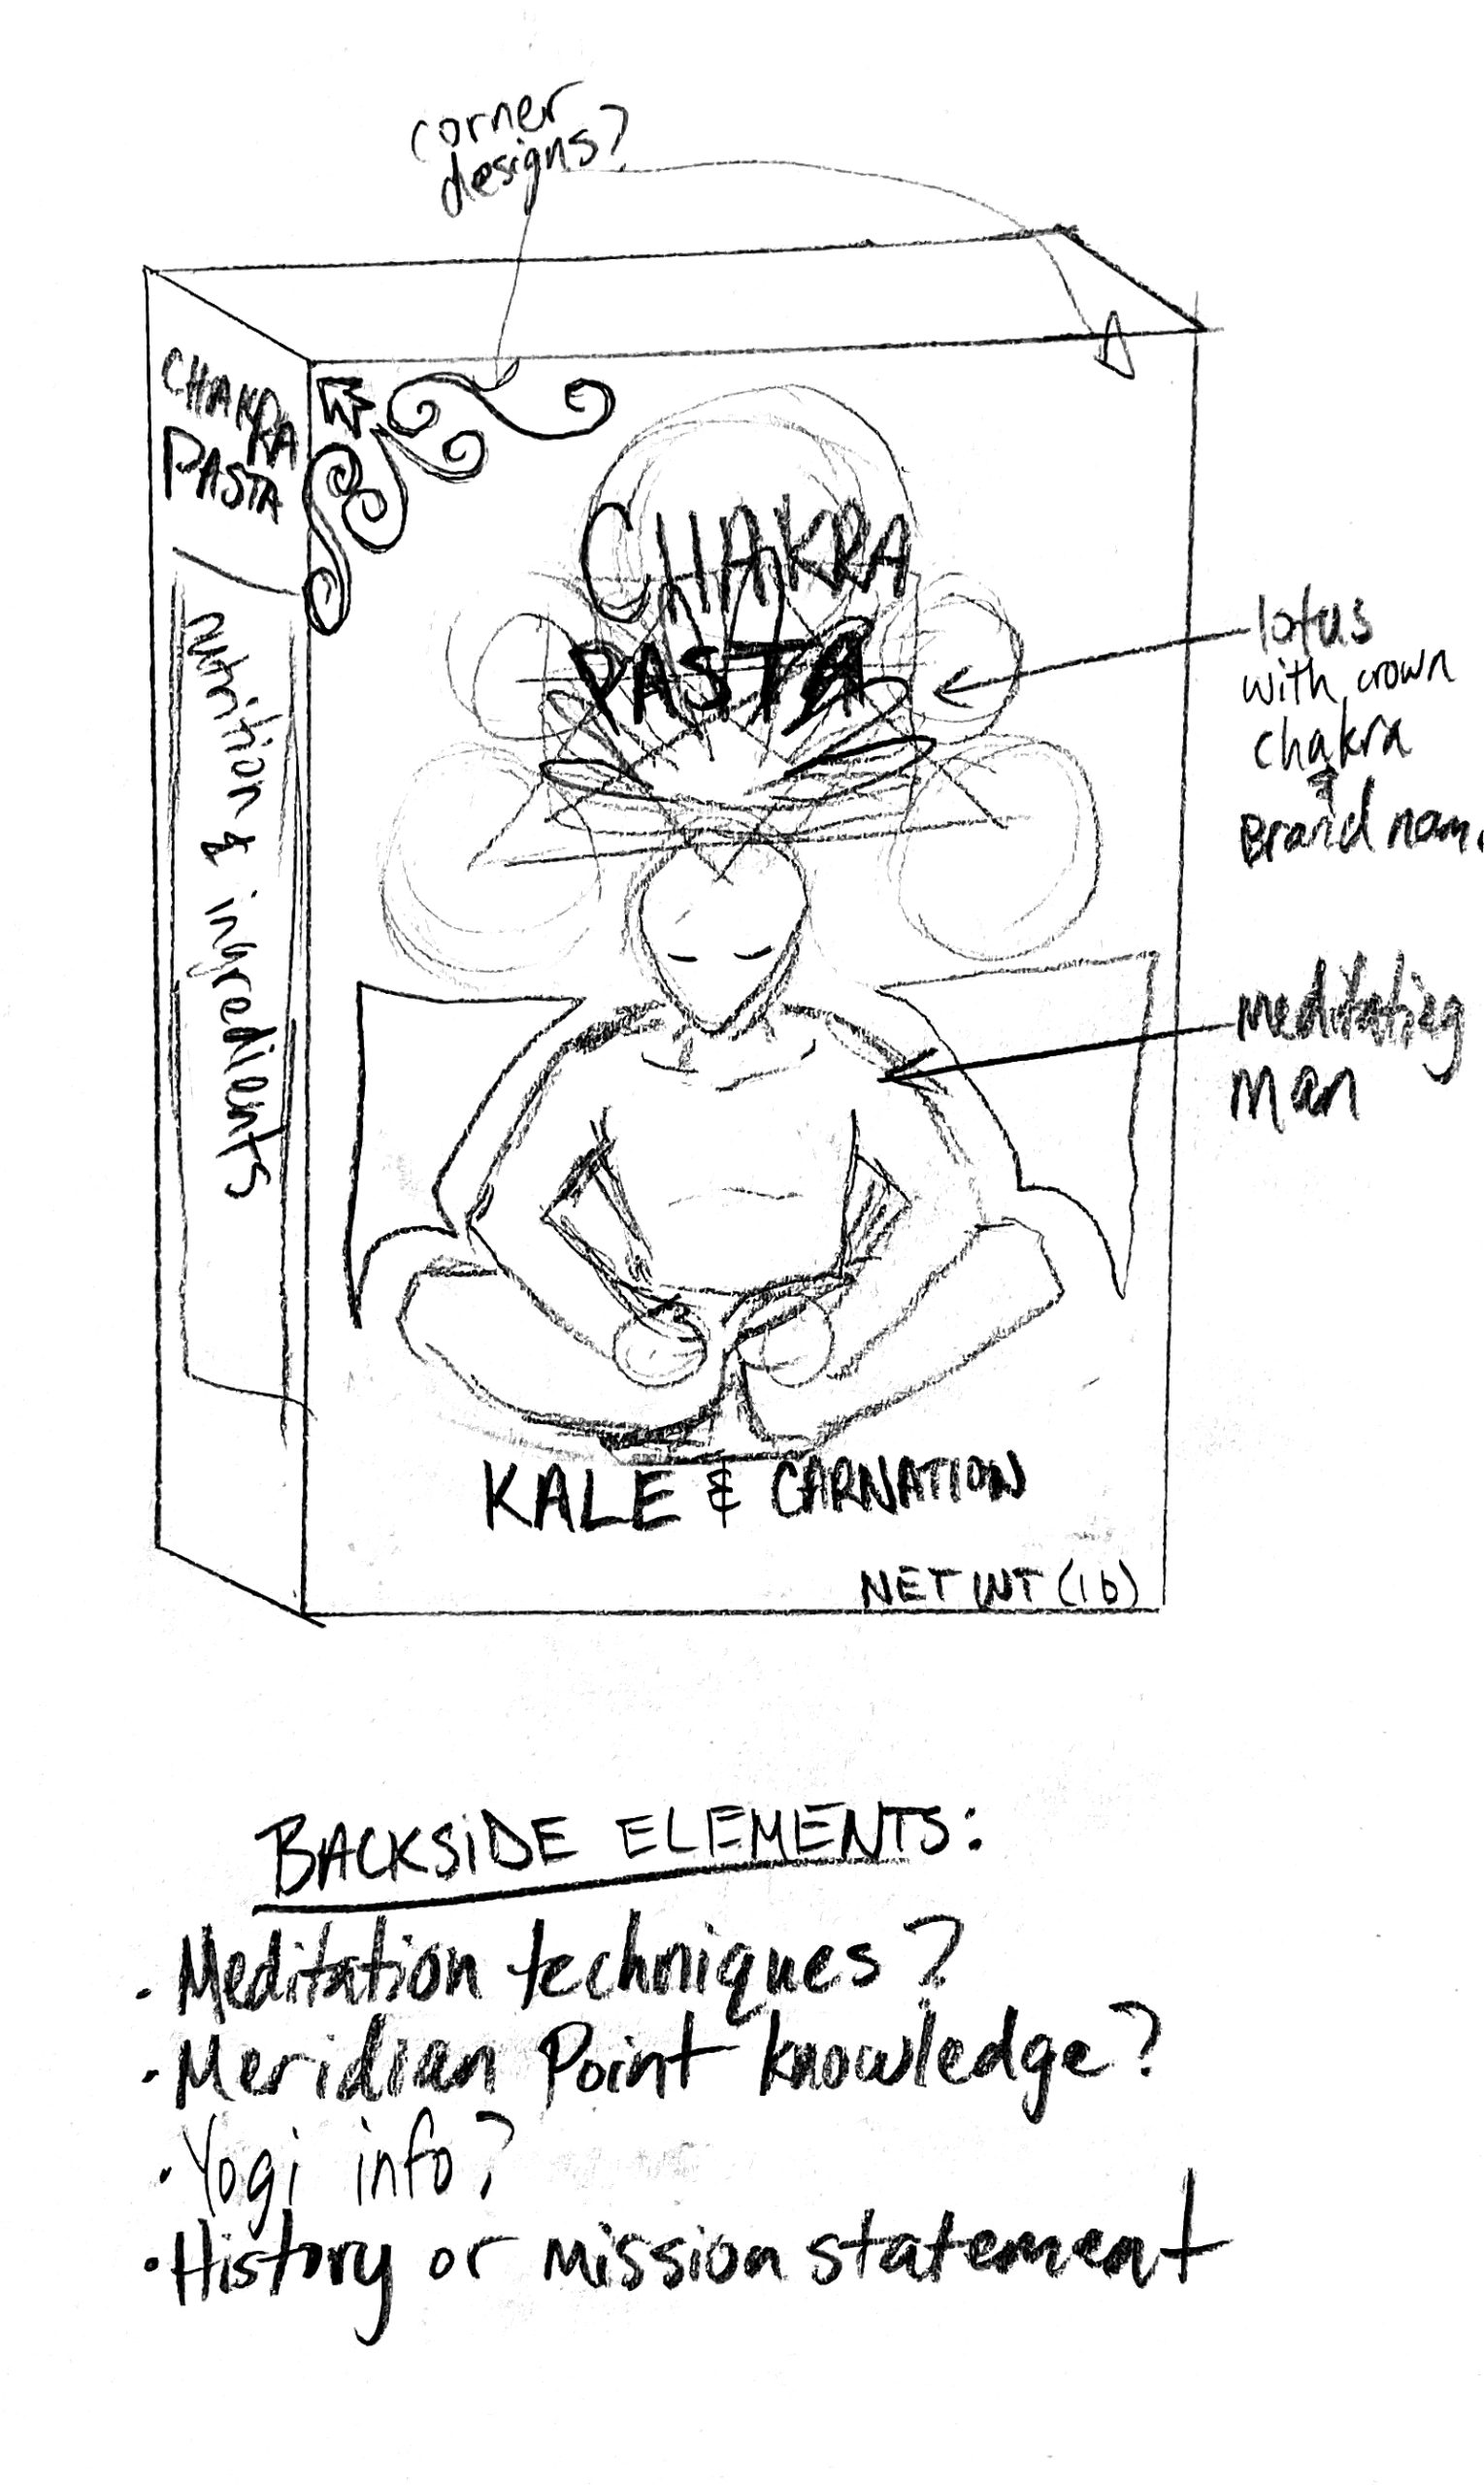 corner
designs?
CHAKRA
PASTA
nutrition & ingredients
CHAKRA
PASTA
lotus
with crown
chakra
&
Brand nam
meditating
man
KALE & CARNATION
NET WT (lb)
BACKSIDE ELEMENTS:
· Meditation techniques?
· Meridian Point knowledge?
· Yogi info?
· History or mission statement